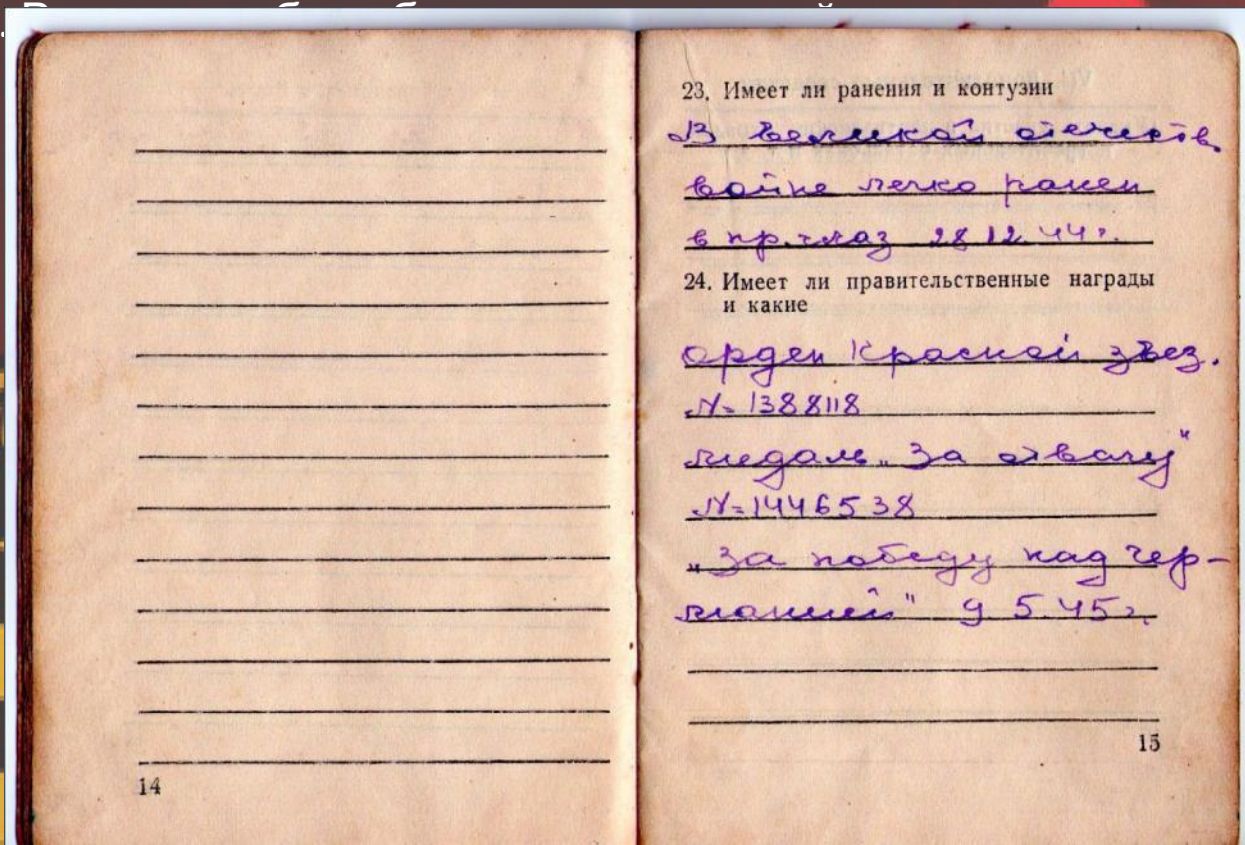 14
23. Имеет ли ранения и контузии
В великой отечеств.
войне легко ранен
в пр. глаз 28 12. 44 г.
24. Имеет ли правительственные награды
и какие
орден Красной звез.
N= 1388118
медаль „За отвагу"
N=1446538
„За победу над гер-
манией" 9 5.45 г.
15